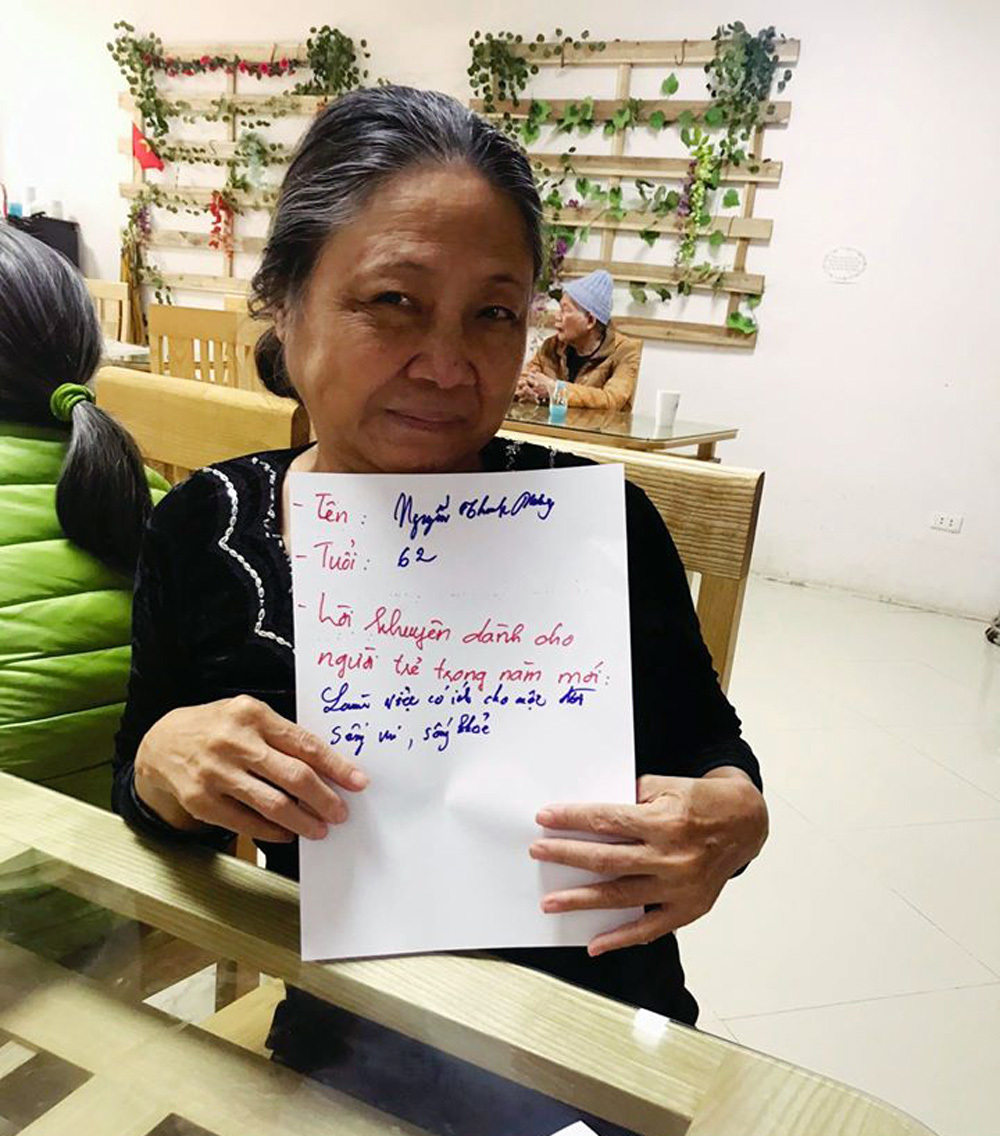 - Tên : Nguyễn Thanh
- Tuổi : 62
- Lời khuyên dành cho
người trẻ trong năm mới:
Làm việc có ích cho một đời
Sống vui, sống khoẻ